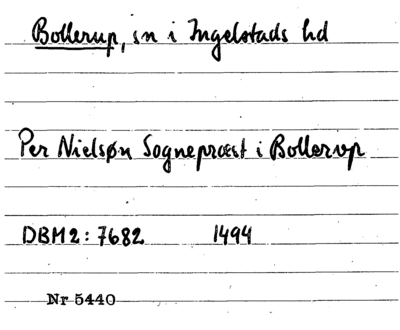 Bollerup, sn i Ingelstads hd
Per Nielsøn Sognepræst i Bollerup
DBM2: 7682 1494
Nr 5440